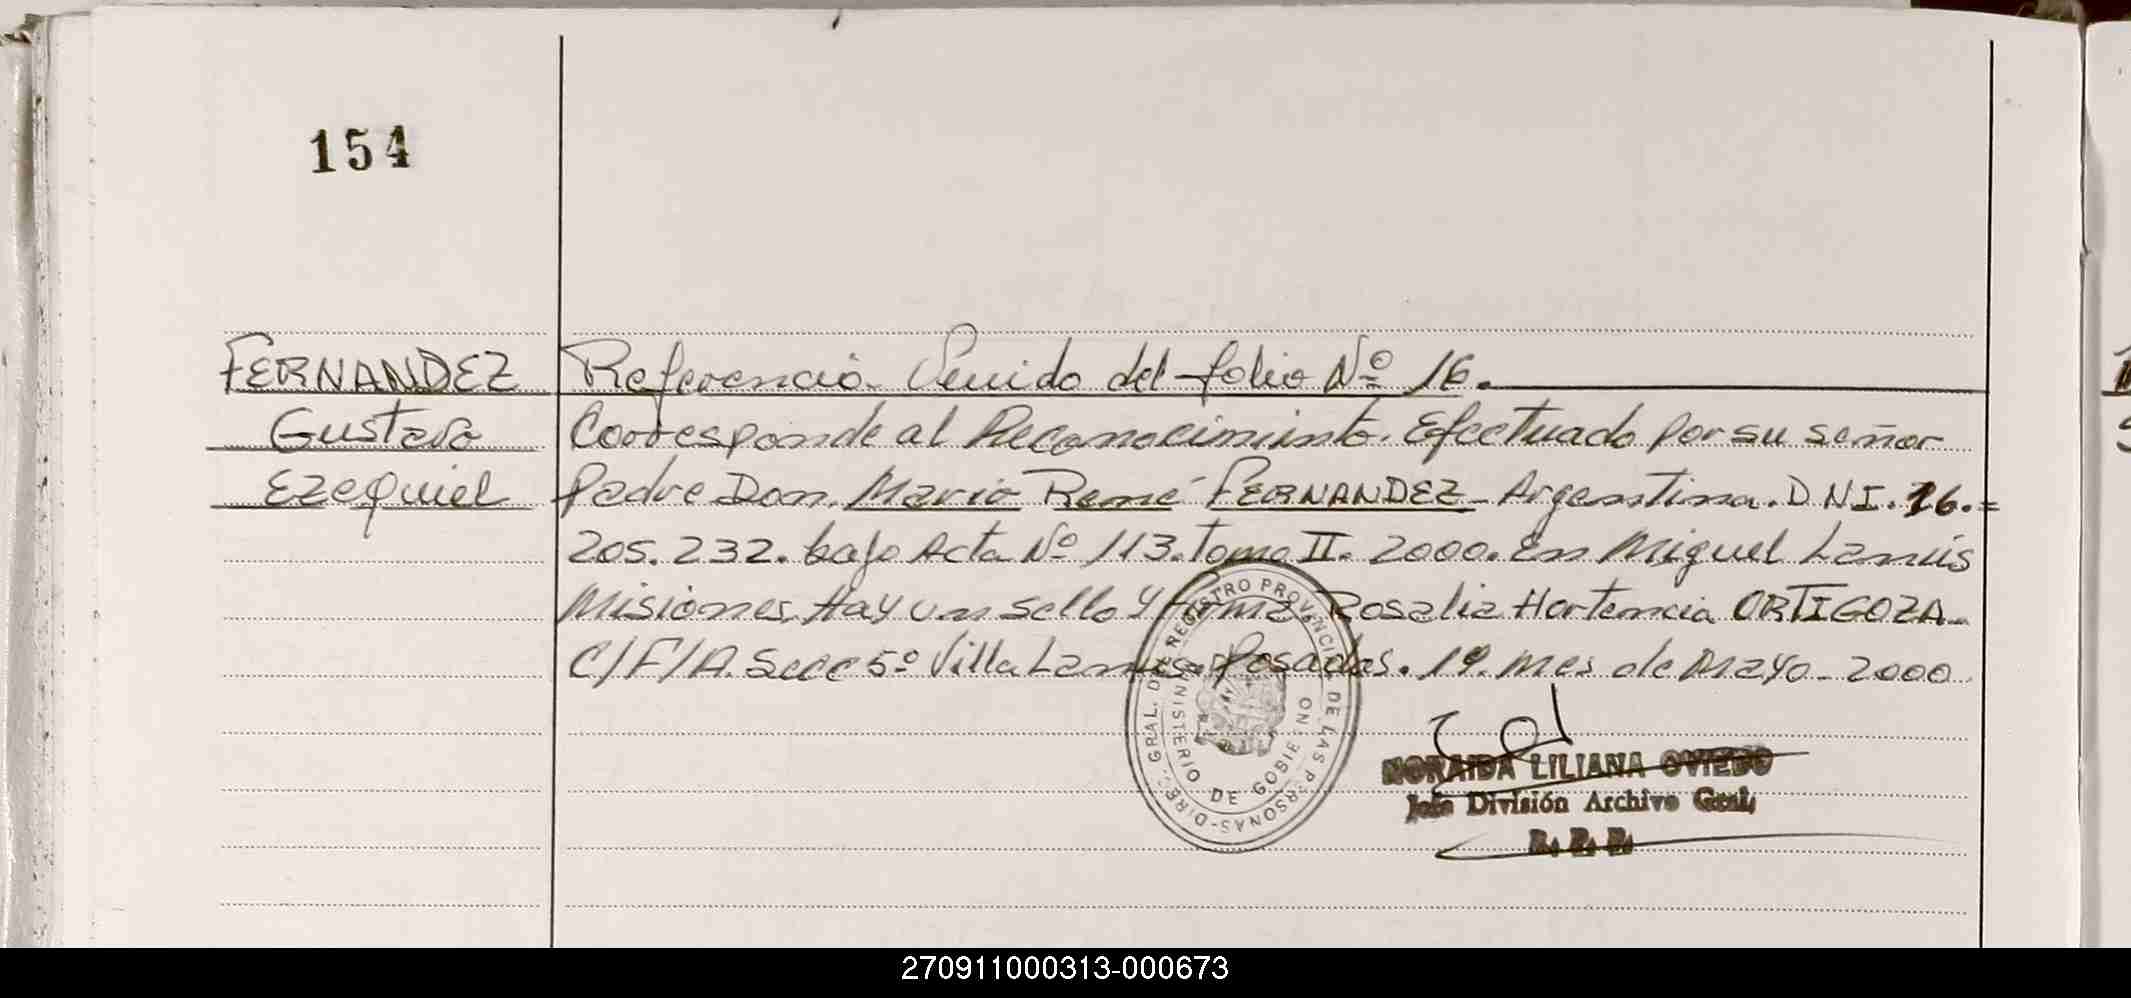 154
FERNANDEZ
Gustavo
Ezequiel
Referencia. Venido del folio Nº 16.
Corresponde al Reconocimiento. Efectuado por su señor
Padre Don. Mario René FERNANDEZ - Argentina. D N I. 26.=
205.232. bajo Acta Nº 113. Tomo II. 2000. En Miguel Lanús
Misiones. Hay un sello y firma. Rosalia Hortencia ORTIGOZA-
C/F/A. Secc 5º Villa Lanus. Posadas. 19. mes de Mayo - 2000
REGISTRO PROVINCIAL DE LAS PERSONAS - DIREC. GRAL. DEL
MINISTERIO DE GOBIERNO
NORAIDA LILIANA OVIEDO
Jefe División Archivo Gral.
R. P. P.
270911000313-000673